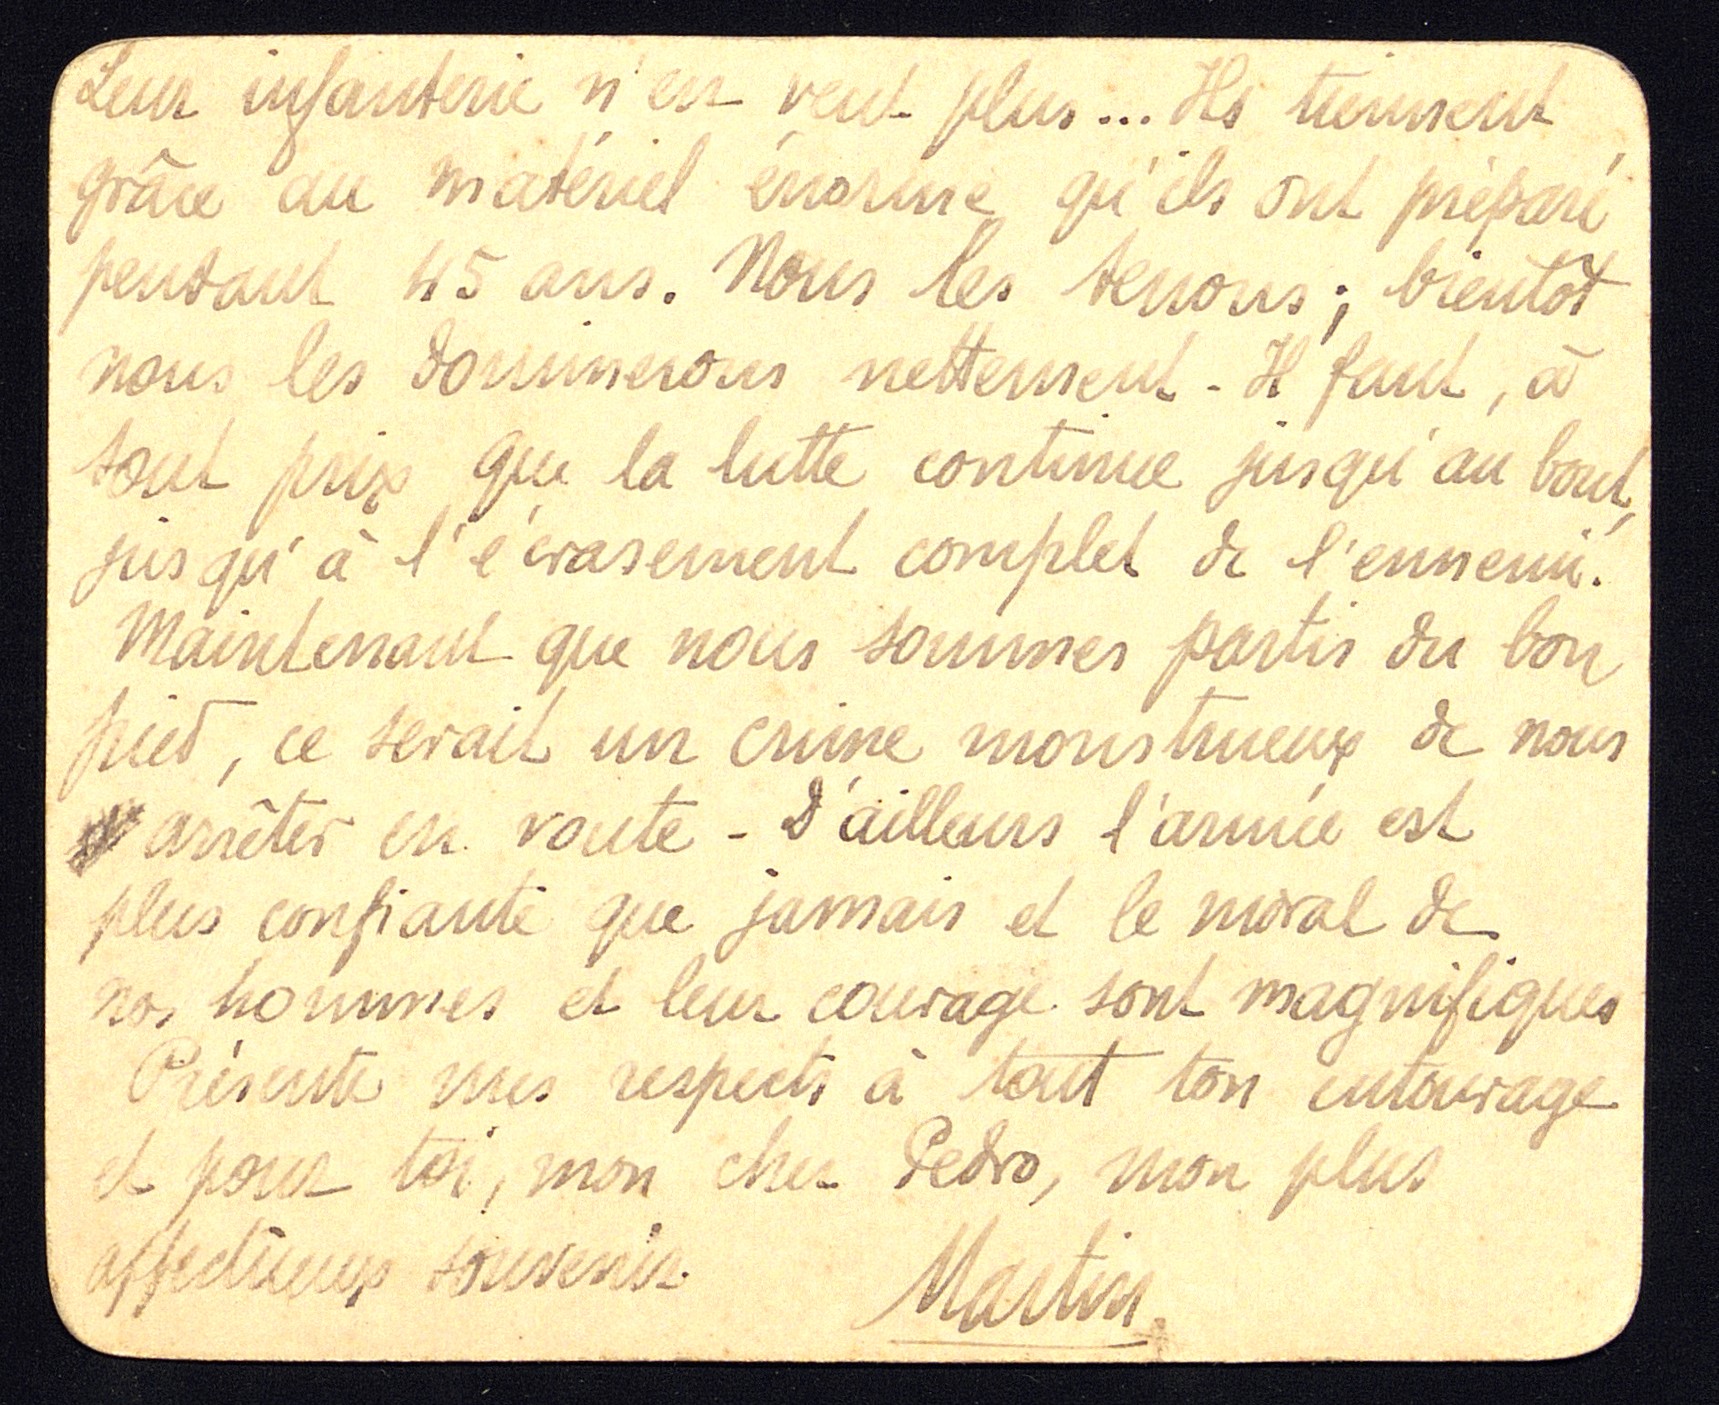 Leur infanterie n'en veut plus... Ils tiennent
grâce au matériel énorme qu'ils ont préparé
pendant 45 ans. Nous les tenons; bientôt
nous les dominerons nettement - Il faut, à
tout prix que la lutte continue jusqu'au bout,
jusqu'à l'écrasement complet de l'ennemi.
Maintenant que nous sommes partis du bon
pied, ce serait un crime monstrueux de nous
arrêter en route - D'ailleurs l'armée est
plus confiante que jamais et le moral de
nos hommes et leur courage sont magnifiques
Présente mes respects à tout ton entourage
et pour toi, mon cher Pedro, mon plus
affectueux souvenir
Martin